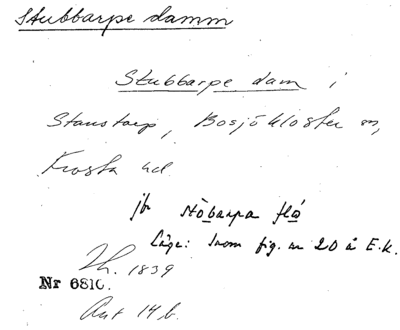 Stubbarpe damm
Stubbarpe dam i
Stanstorp, Bosjökloster sn,
Frosta hd.
jfr Stòbarpa flå
Läge: Inom fig. nr 20 å E.k.
Th. 1839
Nr 6810.
Ant 14 b.